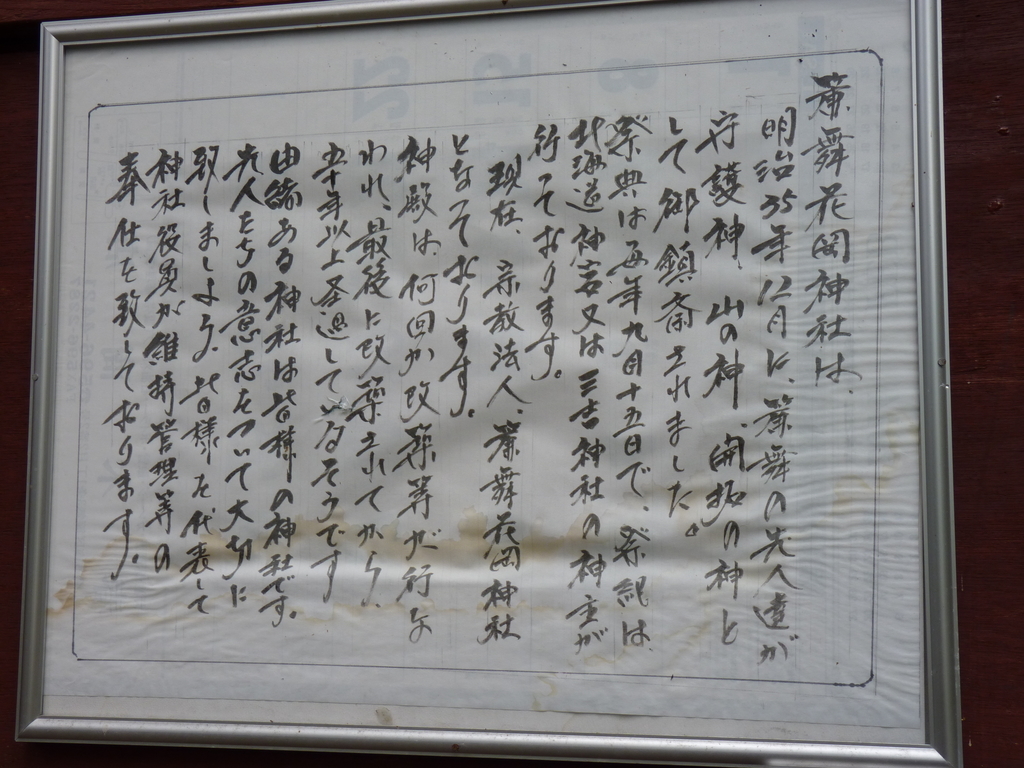 簾舞花岡神社は、
明治35年12月に、簾舞の先人達が
守護神、山の神、開拓の神と
して御鎮斎されました。
祭典は毎年九月十五日で、祭祀は、
北海道神宮又は三吉神社の神主が
行っております。
現在、宗教法人、簾舞花岡神社
となっております。
神殿は、何回か改築等が行な
われ、最後に改築されてから、
五十年以上経過しているそうです
由緒ある神社は皆様の神社です。
先人たちの意志をついで大切に
致しましよう、皆様を代表して
神社役員が維持管理等の
奉仕を致しております。